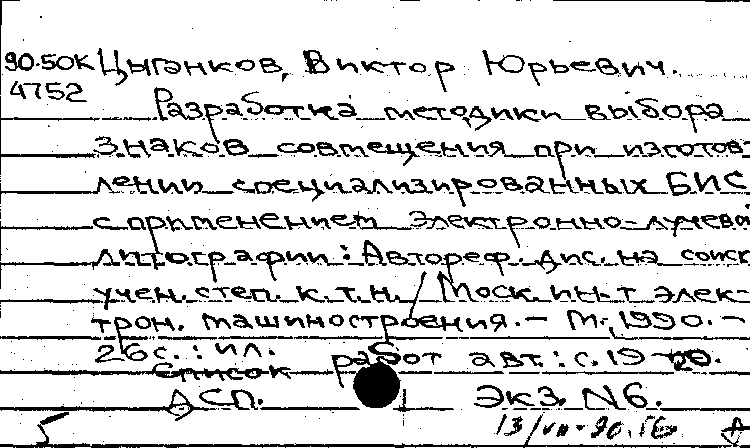 90-50к Цыганков, Виктор Юрьевич.
4752
Разработка методики выбора
знаков совмещения при изготов-
лении специализированных БИС
с применением электронно-лучевой
литографии : Автореф. дис. на соиск.
учен. степ. к. т. н. / Моск. ин-т элек-
трон. машиностроения. - М., 1990. -
26 с. : ил.
Список работ авт.: с. 19-20.
ДСП. Экз. N6.
13/VII-90.